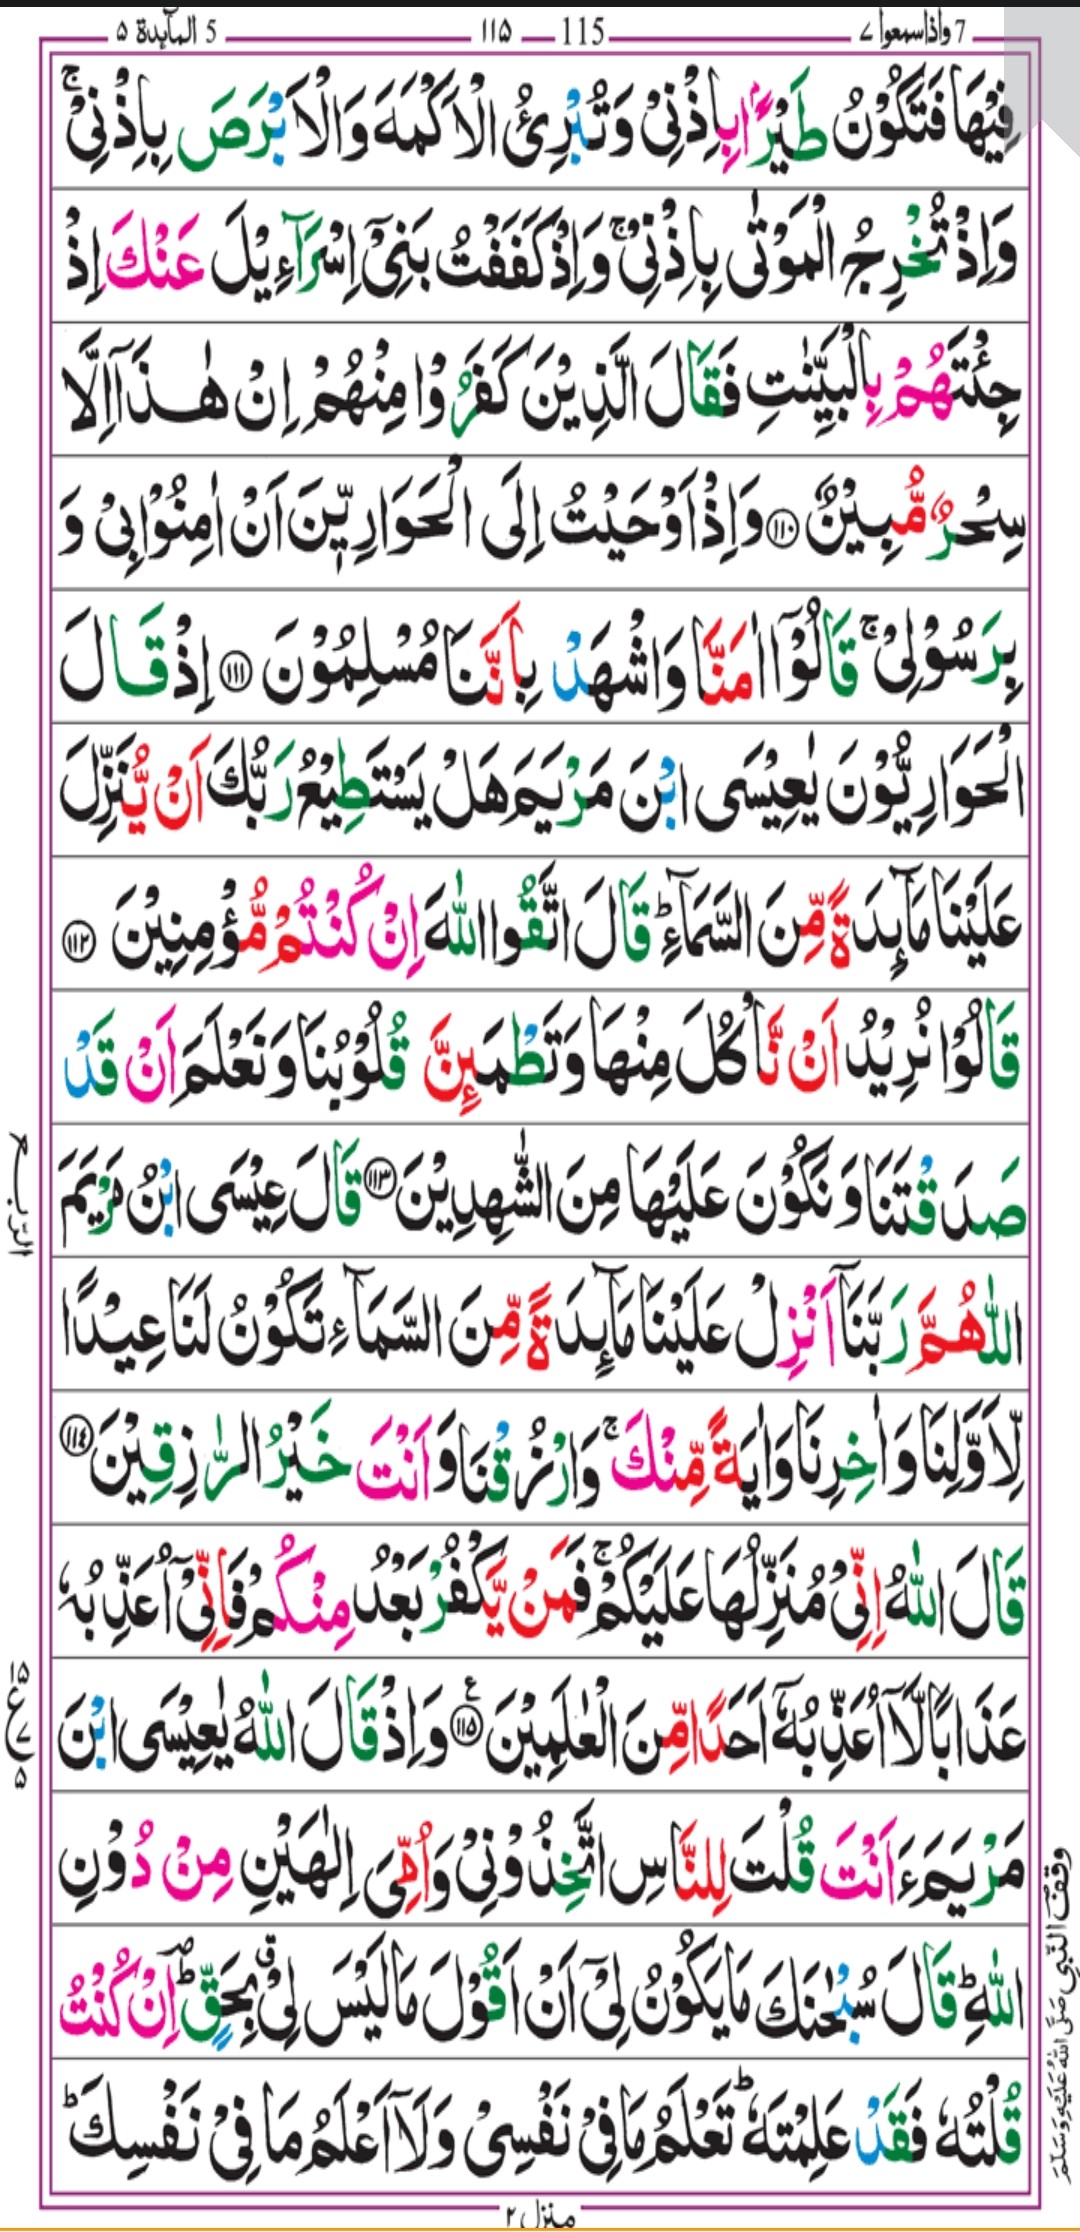 7 واذاسمعوا ٧ 115 ١١٥ 5 المآىِٕدة ٥
فِیْهَا فَتَكُوْنُ طَیْرًۢا بِاِذْنِیْ وَ تُبْرِئُ الْاَكْمَهَ وَ الْاَبْرَصَ بِاِذْنِیْ ۚ
وَ اِذْ تُخْرِجُ الْمَوْتٰى بِاِذْنِیْ ۚ وَ اِذْ كَفَفْتُ بَنِیْۤ اِسْرَآءِیْلَ عَنْكَ اِذْ
جِئْتَهُمْ بِالْبَیِّنٰتِ فَقَالَ الَّذِیْنَ كَفَرُوْا مِنْهُمْ اِنْ هٰذَاۤ اِلَّا
سِحْرٌ مُّبِیْنٌ ﴿١١٠﴾ وَ اِذْ اَوْحَیْتُ اِلَى الْحَوَارِیّٖنَ اَنْ اٰمِنُوْا بِیْ وَ
بِرَسُوْلِیْ ۚ قَالُوْۤا اٰمَنَّا وَ اشْهَدْ بِاَنَّنَا مُسْلِمُوْنَ ﴿١١١﴾ اِذْ قَالَ
الْحَوَارِیُّوْنَ یٰعِیْسَى ابْنَ مَرْیَمَ هَلْ یَسْتَطِیْعُ رَبُّكَ اَنْ یُّنَزِّلَ
عَلَیْنَا مَآىِٕدَةً مِّنَ السَّمَآءِ ؕ قَالَ اتَّقُوا اللّٰهَ اِنْ كُنْتُمْ مُّؤْمِنِیْنَ ﴿١١٢﴾
قَالُوْا نُرِیْدُ اَنْ نَّاْكُلَ مِنْهَا وَ تَطْمَىِٕنَّ قُلُوْبُنَا وَ نَعْلَمَ اَنْ قَدْ
صَدَقْتَنَا وَ نَكُوْنَ عَلَیْهَا مِنَ الشّٰهِدِیْنَ ﴿١١٣﴾ قَالَ عِیْسَى ابْنُ مَرْیَمَ
اللّٰهُمَّ رَبَّنَاۤ اَنْزِلْ عَلَیْنَا مَآىِٕدَةً مِّنَ السَّمَآءِ تَكُوْنُ لَنَا عِیْدًا
لِّاَوَّلِنَا وَ اٰخِرِنَا وَ اٰیَةً مِّنْكَ ۚ وَ ارْزُقْنَا وَ اَنْتَ خَیْرُ الرّٰزِقِیْنَ ﴿١١٤﴾
قَالَ اللّٰهُ اِنِّیْ مُنَزِّلُهَا عَلَیْكُمْ ۚ فَمَنْ یَّكْفُرْ بَعْدُ مِنْكُمْ فَاِنِّیْۤ اُعَذِّبُهٗ
عَذَابًا لَّاۤ اُعَذِّبُهٗۤ اَحَدًا مِّنَ الْعٰلَمِیْنَ ﴿١١٥﴾ ع وَ اِذْ قَالَ اللّٰهُ یٰعِیْسَى ابْنَ
مَرْیَمَ ءَاَنْتَ قُلْتَ لِلنَّاسِ اتَّخِذُوْنِیْ وَ اُمِّیَ اِلٰهَیْنِ مِنْ دُوْنِ
اللّٰهِ ؕ قَالَ سُبْحٰنَكَ مَا یَكُوْنُ لِیْۤ اَنْ اَقُوْلَ مَا لَیْسَ لِیْ ۗ بِحَقٍّ ؕؔ اِنْ كُنْتُ
قُلْتُهٗ فَقَدْ عَلِمْتَهٗ ؕ تَعْلَمُ مَا فِیْ نَفْسِیْ وَ لَاۤ اَعْلَمُ مَا فِیْ نَفْسِكَ ؕ
منزل ٢
الرّبع
١٥ ع ٧ ٥
وقف النبی صَلَّی اللّٰهُ عَلَیْهِ وَسَلَّمَ